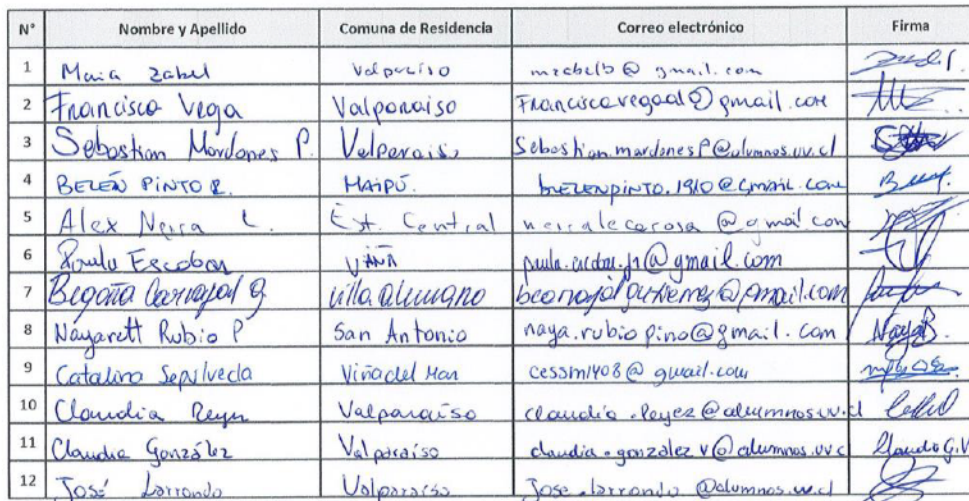 N° Nombre y Apellido Comuna de Residencia Correo electrónico Firma
1 Maia Zabel Valparaíso mzabelb@gmail.com
2 Francisca Vega Valparaiso Franciscavegaal@gmail.com
3 Sebastian Mardones P. Valparaiso Sebastian.mardonesP@alumnos.uv.cl
4 BELÉN PINTO R. MAIPÚ. BELENPINTO.1910@GMAIL.COM
5 Alex Neira L. Est. Central neiralecarosa@gmail.com
6 Paula Escobar VIÑA @gmail.com
7 Begoña Carvajal G villa alemana @gmail.com
8 Nayarett Rubio P San Antonio naya.rubio.pino@gmail.com
9 Catalina Sepulveda Viña del Mar cessm1408@gmail.com
10 Claudia Reyes Valparaíso claudia.Reyez@alumnos.uv.cl
11 Claudia González Valparaíso claudia.gonzalezv@alumnos.uv.c Claudia G.V
12 José Larrondo Valparaíso Jose.Larrondo@alumnos.uv.cl